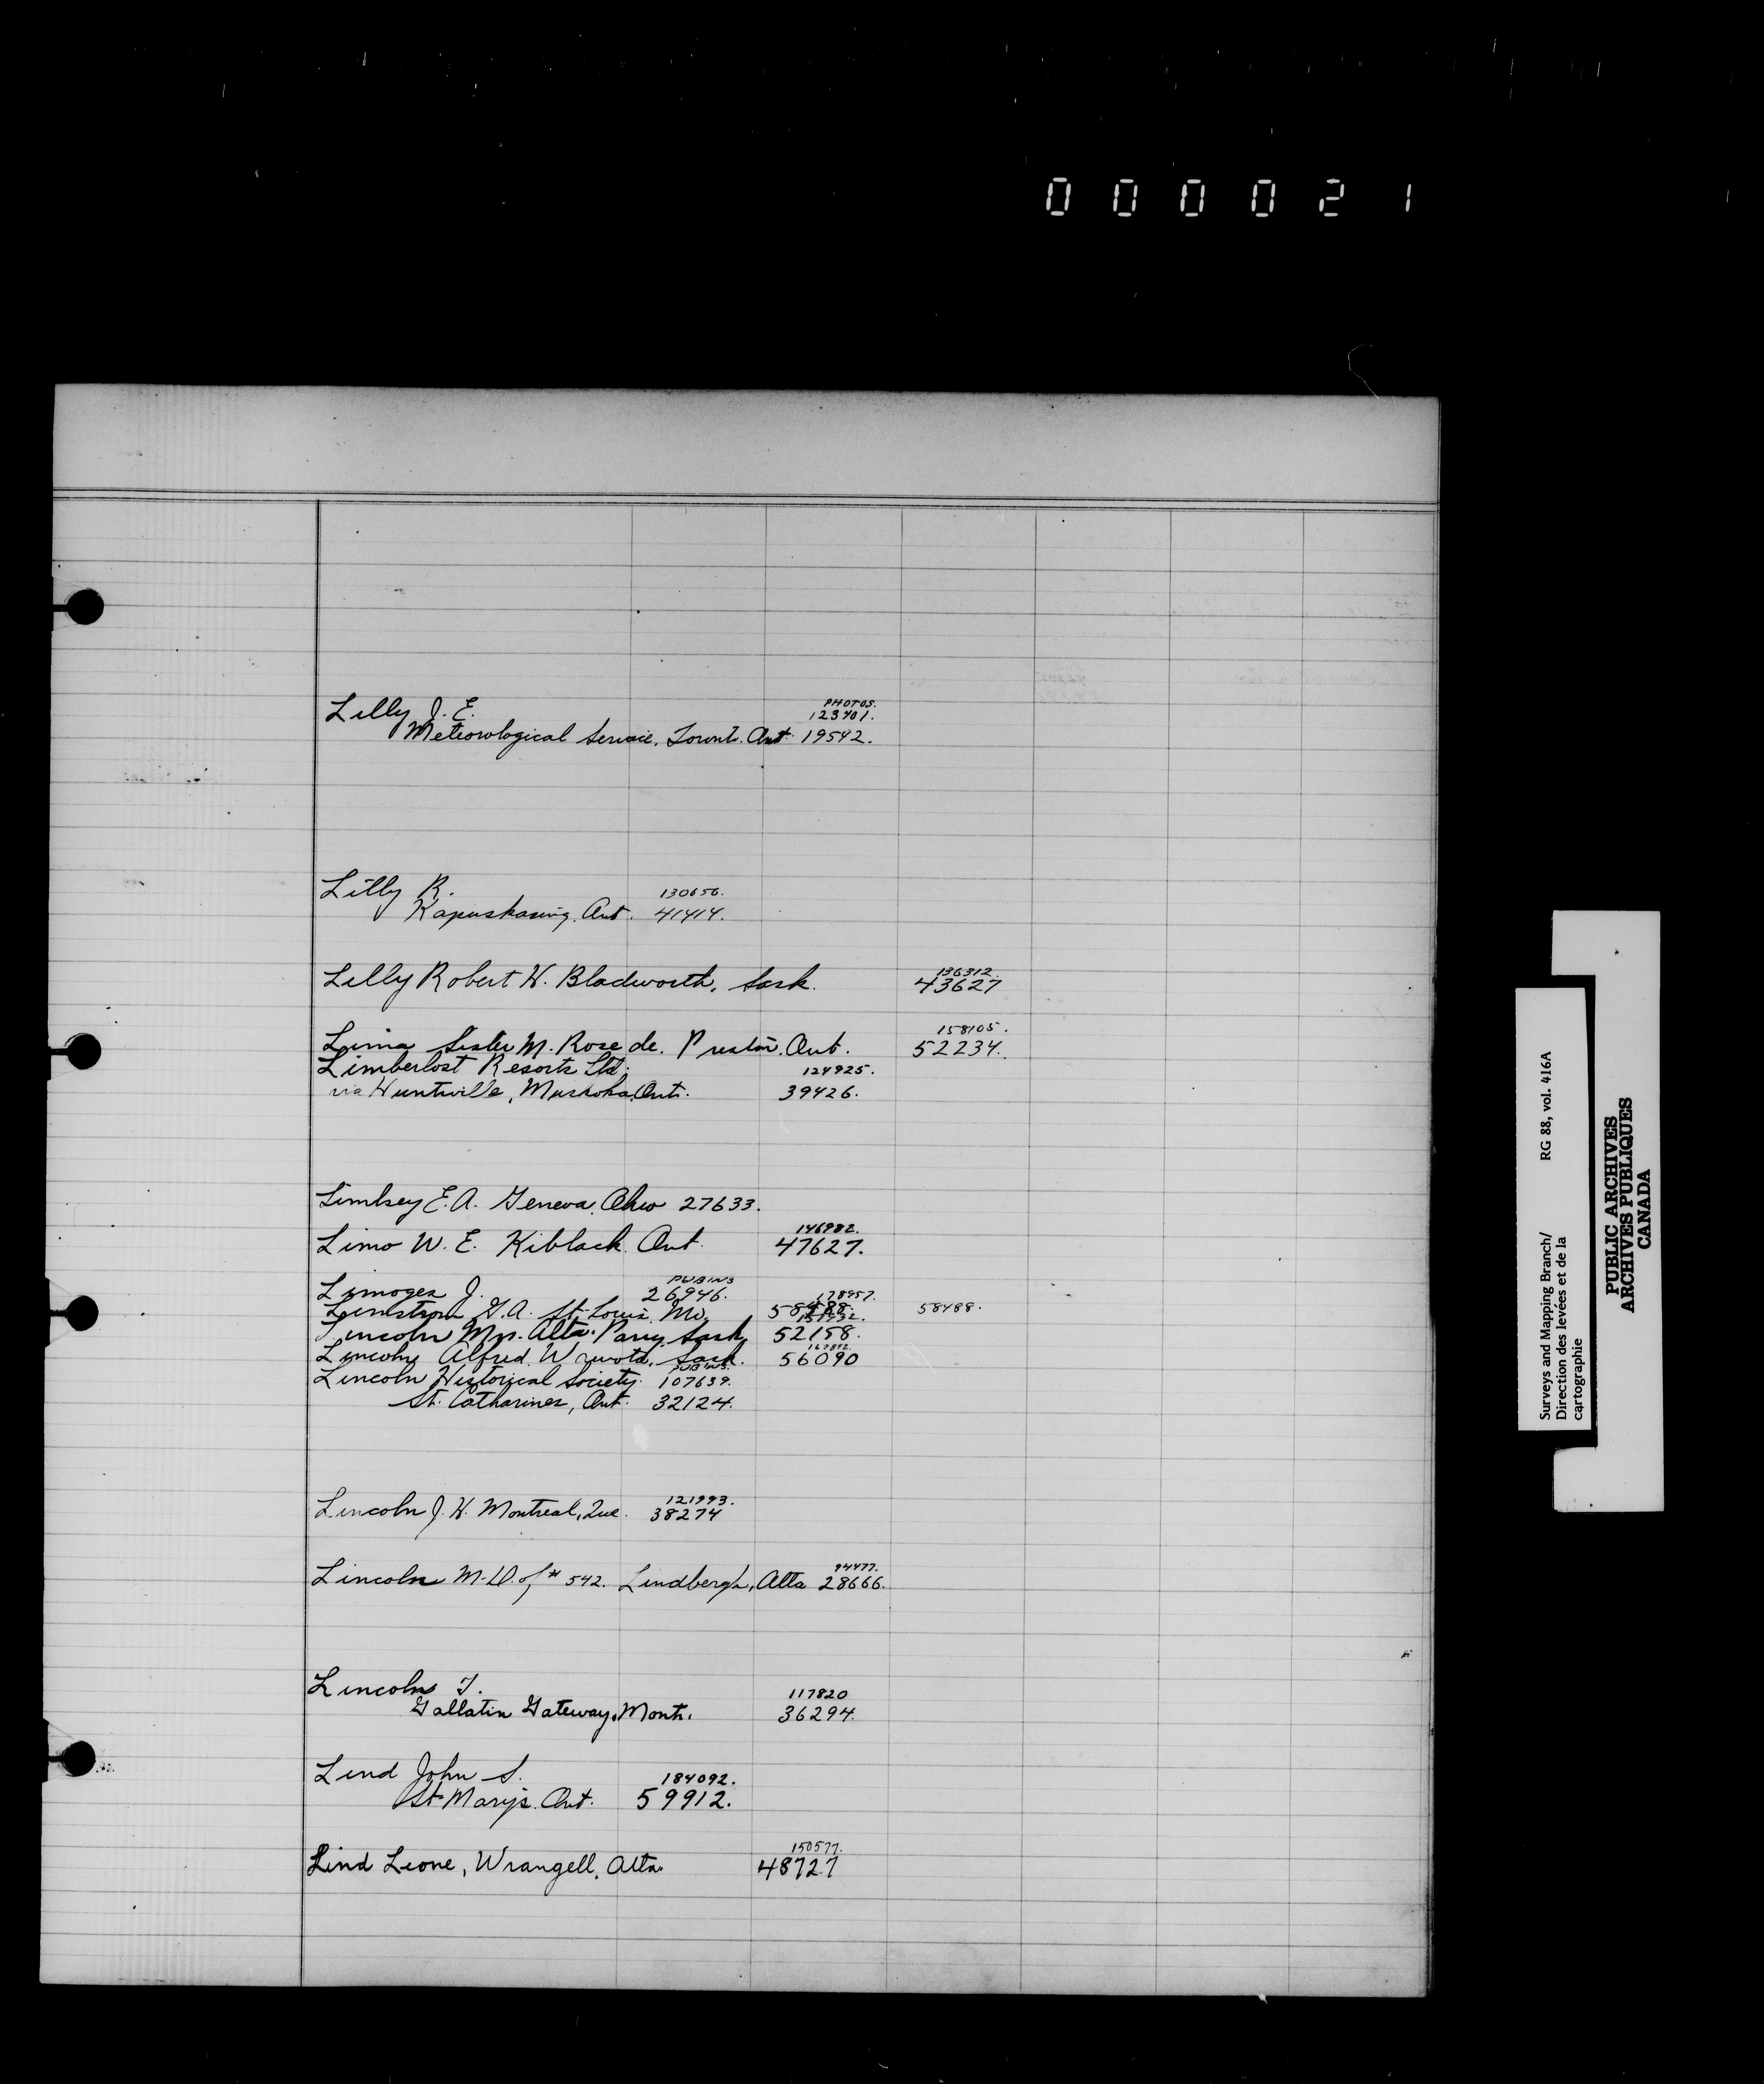 000021
Lilly J. E.
PHOTOS.
123401.
Meteorological Service, Toront. Ont. 19542.
Lilly R.
130656.
Kapuskasing, Ont. 41414.
136312.
Lilly Robert W. Bladworth, Sask. 43627
158105.
Lima Sister M. Rose de. Preston. Ont. 52234.
Limberlost Resorts Ltd.
124925.
via Huntsville, Muskoka, Ont. 39426.
Limbsey E. A. Geneva, Ohio 27633.
146982.
Limo W. E. Kiblack Ont. 47627.
PUBINS
Limoges J. 26946.
178957.
Limstrom G. A. St. Louis Mo. 58488. 58488.
Lincoln Mrs. Alta. Parry Sask. 52158.
Lincoln Alfred. Wawota, Sask. 56090
PUBINS.
Lincoln Historical Society. 107639.
St. Catharines, Ont. 32124.
121993.
Lincoln J. W. Montreal, Que. 38274
94477.
Lincoln M. D. of # 542. Lindbergh, Alta 28666.
Lincoln T.
117820
Gallatin Gateway, Mont. 36294.
Lind John S.
184092.
St. Marys. Ont. 59912.
150577.
Lind Leone, Wrangell, Alta. 48727
Surveys and Mapping Branch/ RG 88, vol. 416A
Direction des levées et de la
cartographie
PUBLIC ARCHIVES
ARCHIVES PUBLIQUES
CANADA